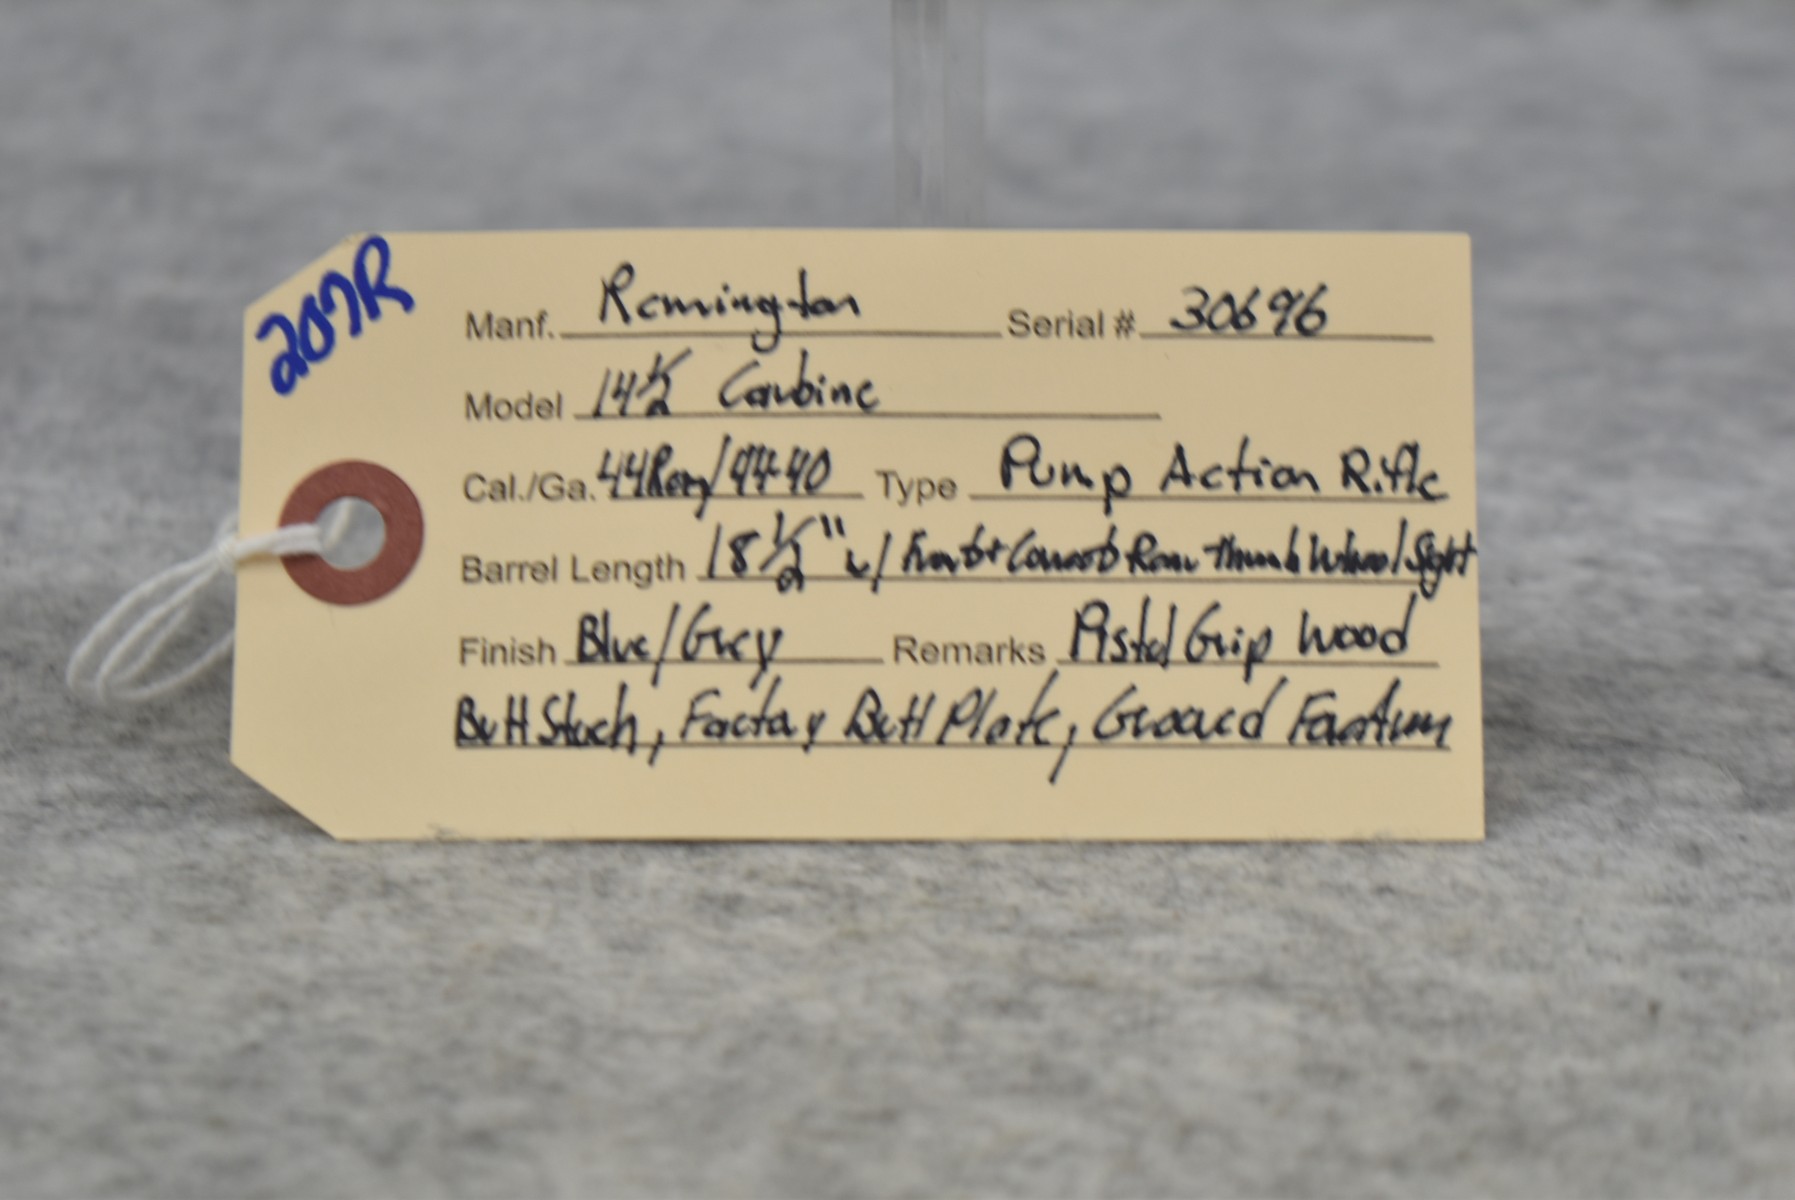 207R
Manf. Remington Serial # 30696
Model 14 1/2 Carbine
Cal./Ga. 44Rem/44-40 Type Pump Action Rifle
Barrel Length 18 1/2" w/ Front + Rear Thumb Wheel Sight
Finish Blue/Grey Remarks Pistol Grip Wood
Butt Stock, Factory Butt Plate, Grooved Forearm